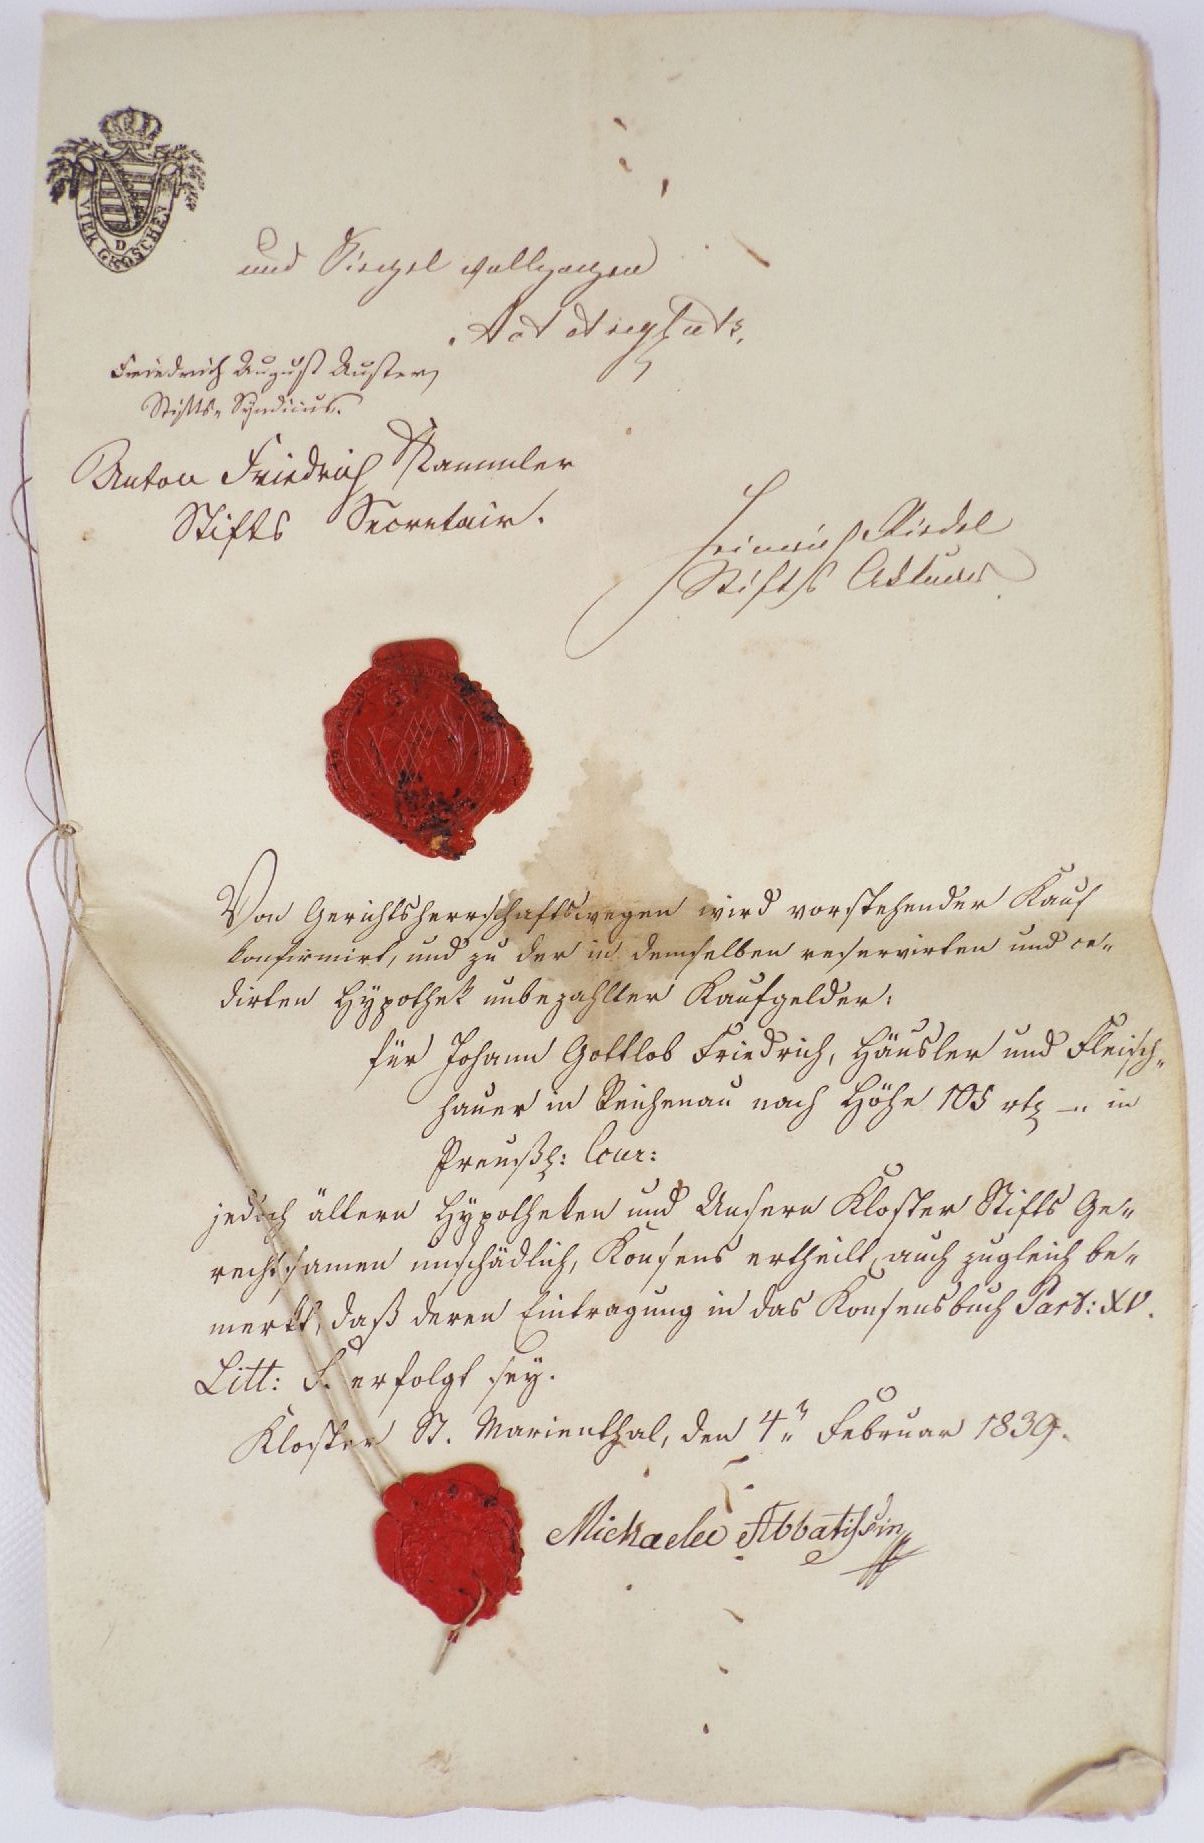 VIER GROSCHEN
D
und Siegel vollzogen
Act. et registr.
Friedrich August Auster,
Stifts-Syndicus.
Anton Friedrich Stammler
Stifts Secretair.
Heinrich Riedel
Stifts Aktuar
Von Gerichtsherrschaftswegen wird vorstehender Kauf
konfirmirt, und zu der in demselben reservirten und ce„
dirten Hypothek unbezahlter Kaufgelder:
für Johann Gottlob Friedrich, Häusler und Fleisch„
hauer in Reichenau nach Höhe 105 rtl –„ in
Preußl: Cour:
jedoch ältern Hypotheken und Unsern Kloster Stifts Ge„
rechtsamen unschädlich, Konsens ertheilt, auch zugleich be„
merkt, daß deren Eintragung in das Konsensbuch Part: XV.
Litt: F. erfolgt sey.
Kloster St. Marienthal, den 4n Februar 1839.
Michaele Abbatissin